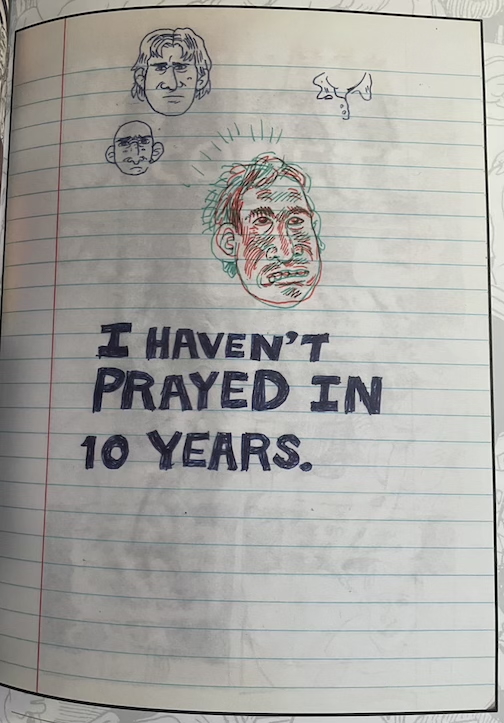 I HAVEN'T
PRAYED IN
10 YEARS.